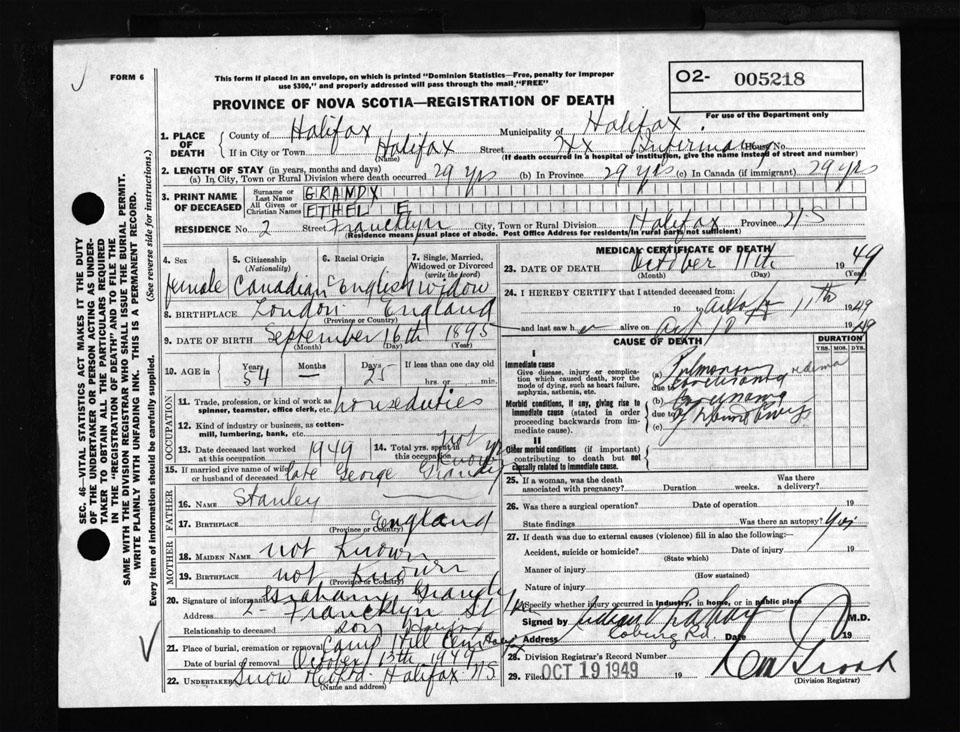 FORM 6
This form if placed in an envelope, on which is printed "Dominion Statistics—Free, penalty for improper
use $300," and properly addressed will pass through the mail "FREE"
O2- 005218
For use of the Department only
PROVINCE OF NOVA SCOTIA—REGISTRATION OF DEATH
1. PLACE OF DEATH
County of Halifax Municipality of Halifax
If in City or Town Halifax Street Hx Infirmary House No.
(Name) (If death occurred in a hospital or institution, give the name instead of street and number)
2. LENGTH OF STAY (in years, months and days)
(a) In City, Town or Rural Division where death occurred 29 yrs (b) In Province 29 yrs (c) In Canada (if immigrant) 29 yrs
3. PRINT NAME OF DECEASED
Surname or Last Name GRANDY
All Given or Christian Names ETHEL E
RESIDENCE No. 2 Street Francklyn City, Town or Rural Division Halifax Province N.S
(Residence means usual place of abode. Post Office Address for residents in rural parts not sufficient)
4. Sex female
5. Citizenship (Nationality) Canadian
6. Racial Origin English
7. Single, Married, Widowed or Divorced (write the word) widow
8. BIRTHPLACE London England
(Province or Country)
9. DATE OF BIRTH September 16th 1895
(Month) (Day) (Year)
10. AGE in Years 54 Months — Days 25 If less than one day old
hrs. or min.
OCCUPATION
11. Trade, profession, or kind of work as spinner, teamster, office clerk, etc. house duties
12. Kind of industry or business, as cotten-mill, lumbering, bank, etc.
13. Date deceased last worked at this occupation 1949
14. Total yrs. spent in this occupation not known
15. If married give name of wife or husband of deceased late George Grandy
FATHER
16. NAME Stanley
17. BIRTHPLACE England
(Province or Country)
MOTHER
18. MAIDEN NAME not known
19. BIRTHPLACE not known
(Province or Country)
20. Signature of informant Graham Grandy
Address 2 - Francklyn St
Relationship to deceased son
21. Place of burial, cremation or removal Camp Hill Cem Halifax
Date of burial or removal October 13th 1949
22. Undertaker Snow Halifax NS
(Name and address)
MEDICAL CERTIFICATE OF DEATH
23. DATE OF DEATH October 11th 1949
(Month) (Day) (Year)
24. I HEREBY CERTIFY that I attended deceased from:
19 to 11th 1949
and last saw her alive on 1949
CAUSE OF DEATH
DURATION
YRS. MOS. DYS.
I
Immediate cause
Give disease, injury or complication which caused death, NOT the mode of dying, such as heart failure, asphyxia, asthenia, etc.
(a) Pulmonary
due to
Morbid conditions, if any, giving rise to immediate cause (stated in order proceeding backwards from immediate cause).
(b)
due to
(c)
II
Other morbid conditions (if important) contributing to death but not causally related to immediate cause.
25. If a woman, was the death associated with pregnancy? Duration weeks. Was there a delivery?
26. Was there a surgical operation? Date of operation 19
State findings Was there an autopsy? Yes
27. If death was due to external causes (violence) fill in also the following:
Accident, suicide or homicide? Date of injury 19
(State which)
Manner of injury
(How sustained)
Nature of injury
Specify whether injury occurred in industry, in home, or in public place
Signed by M.D.
Address Coburg Rd. Date 19
28. Division Registrar's Record Number
29. Filed OCT 19 1949 19
(Division Registrar)
SEC. 46—VITAL STATISTICS ACT MAKES IT THE DUTY
OF THE UNDERTAKER OR PERSON ACTING AS UNDER-
TAKER TO OBTAIN ALL THE PARTICULARS REQUIRED
IN THE "REGISTRATION OF DEATH" AND TO FILE THE
SAME WITH THE DIVISION REGISTRAR WHO SHALL ISSUE THE BURIAL PERMIT.
WRITE PLAINLY WITH UNFADING INK. THIS IS A PERMANENT RECORD.
Every item of information should be carefully supplied. (See reverse side for instructions.)